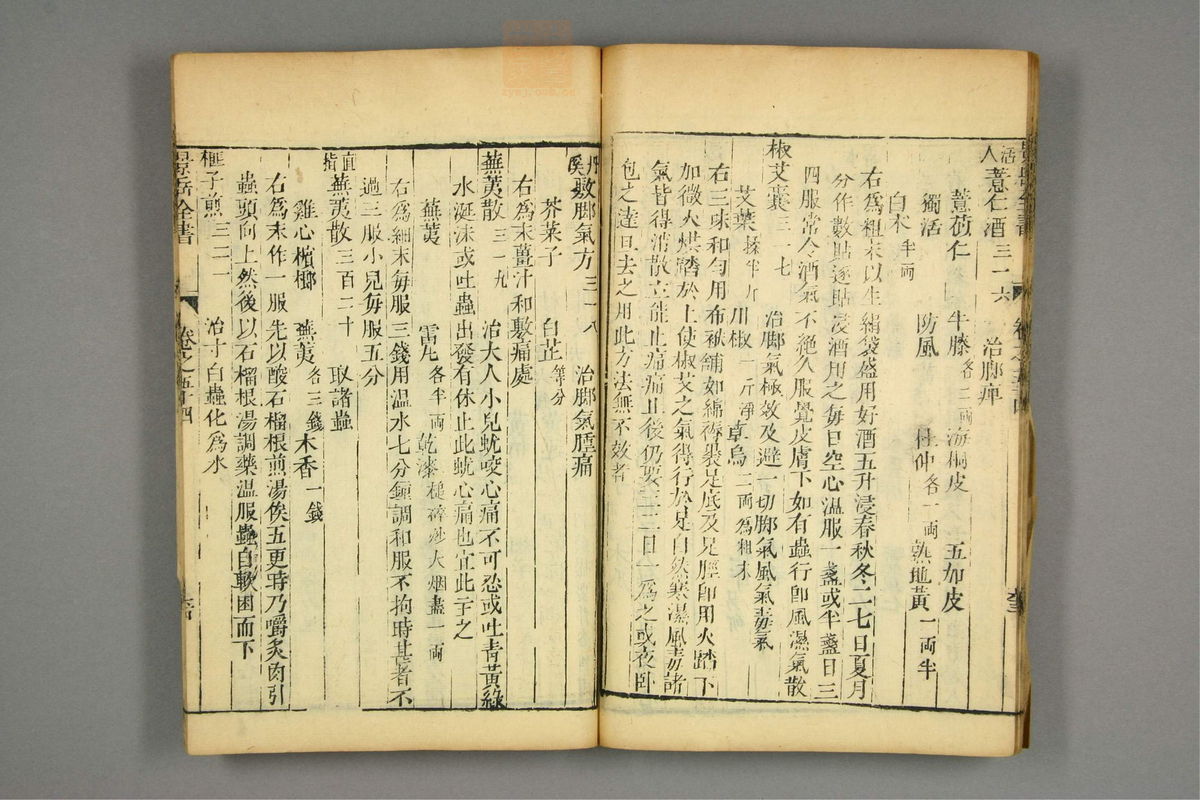 景岳全書 卷之五十四
活人薏仁酒三一六 治脚痺
薏苡仁 牛膝各二両 海桐皮 五加皮
獨活 防風 杜仲各一両 熟地黃一両半
白术半両
右為粗末以生絹袋盛用好酒五升浸春秋冬二七日夏月
分作數貼逐貼浸酒用之每日空心溫服一盞或半盞日三
四服常令酒氣不絶久服覺皮膚下如有蟲行即風濕氣散
椒艾囊三一七 治脚氣極效及避一切脚氣風氣毒氣
艾葉揉半斤 川椒一斤淨 草烏二両為粗末
右三味和勻用布袱舖如綿褥裝足底及足脛即用火踏下
加微火烘踏於上使椒艾之氣得行於足自然寒濕風毒諸
氣皆得消散立能止痛痛止後仍要三二日一為之或夜臥
包之達旦去之用此方法無不效者
丹溪敷脚氣方三一八 治脚氣腫痛
芥菜子 白芷等分
右為末薑汁和敷痛處
蕪荑散三一九 治大人小兒蚘咬心痛不可忍或吐青黃綠
水涎沫或吐蟲出發有休止此蚘心痛也宜此主之
蕪荑 雷丸各半両 乾漆槌碎炒大烟盡一両
右為細末每服三錢用溫水七分鍾調和服不拘時甚者不
過三服小兒每服五分
直指蕪荑散三百二十 取諸蟲
雞心檳榔 蕪荑各三錢 木香一錢
右為末作一服先以酸石榴根煎湯俟五更時乃嚼炙肉引
蟲頭向上然後以石榴根湯調藥溫服蟲自軟困而下
榧子煎三二一 治寸白蟲化為水
景岳全書 卷之五十四